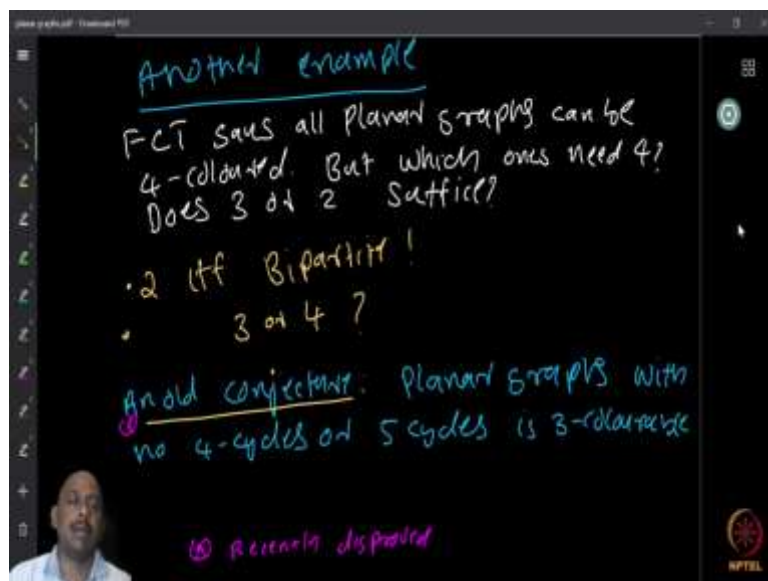 Another example
FCT says all planar graphs can be
4-coloured. But which ones need 4?
Does 3 or 2 suffice?
• 2 iff Bipartite!
• 3 or 4?
An old conjecture: Planar graphs with
no 4-cycles or 5 cycles is 3-colourable
Recently disproved
NPTEL